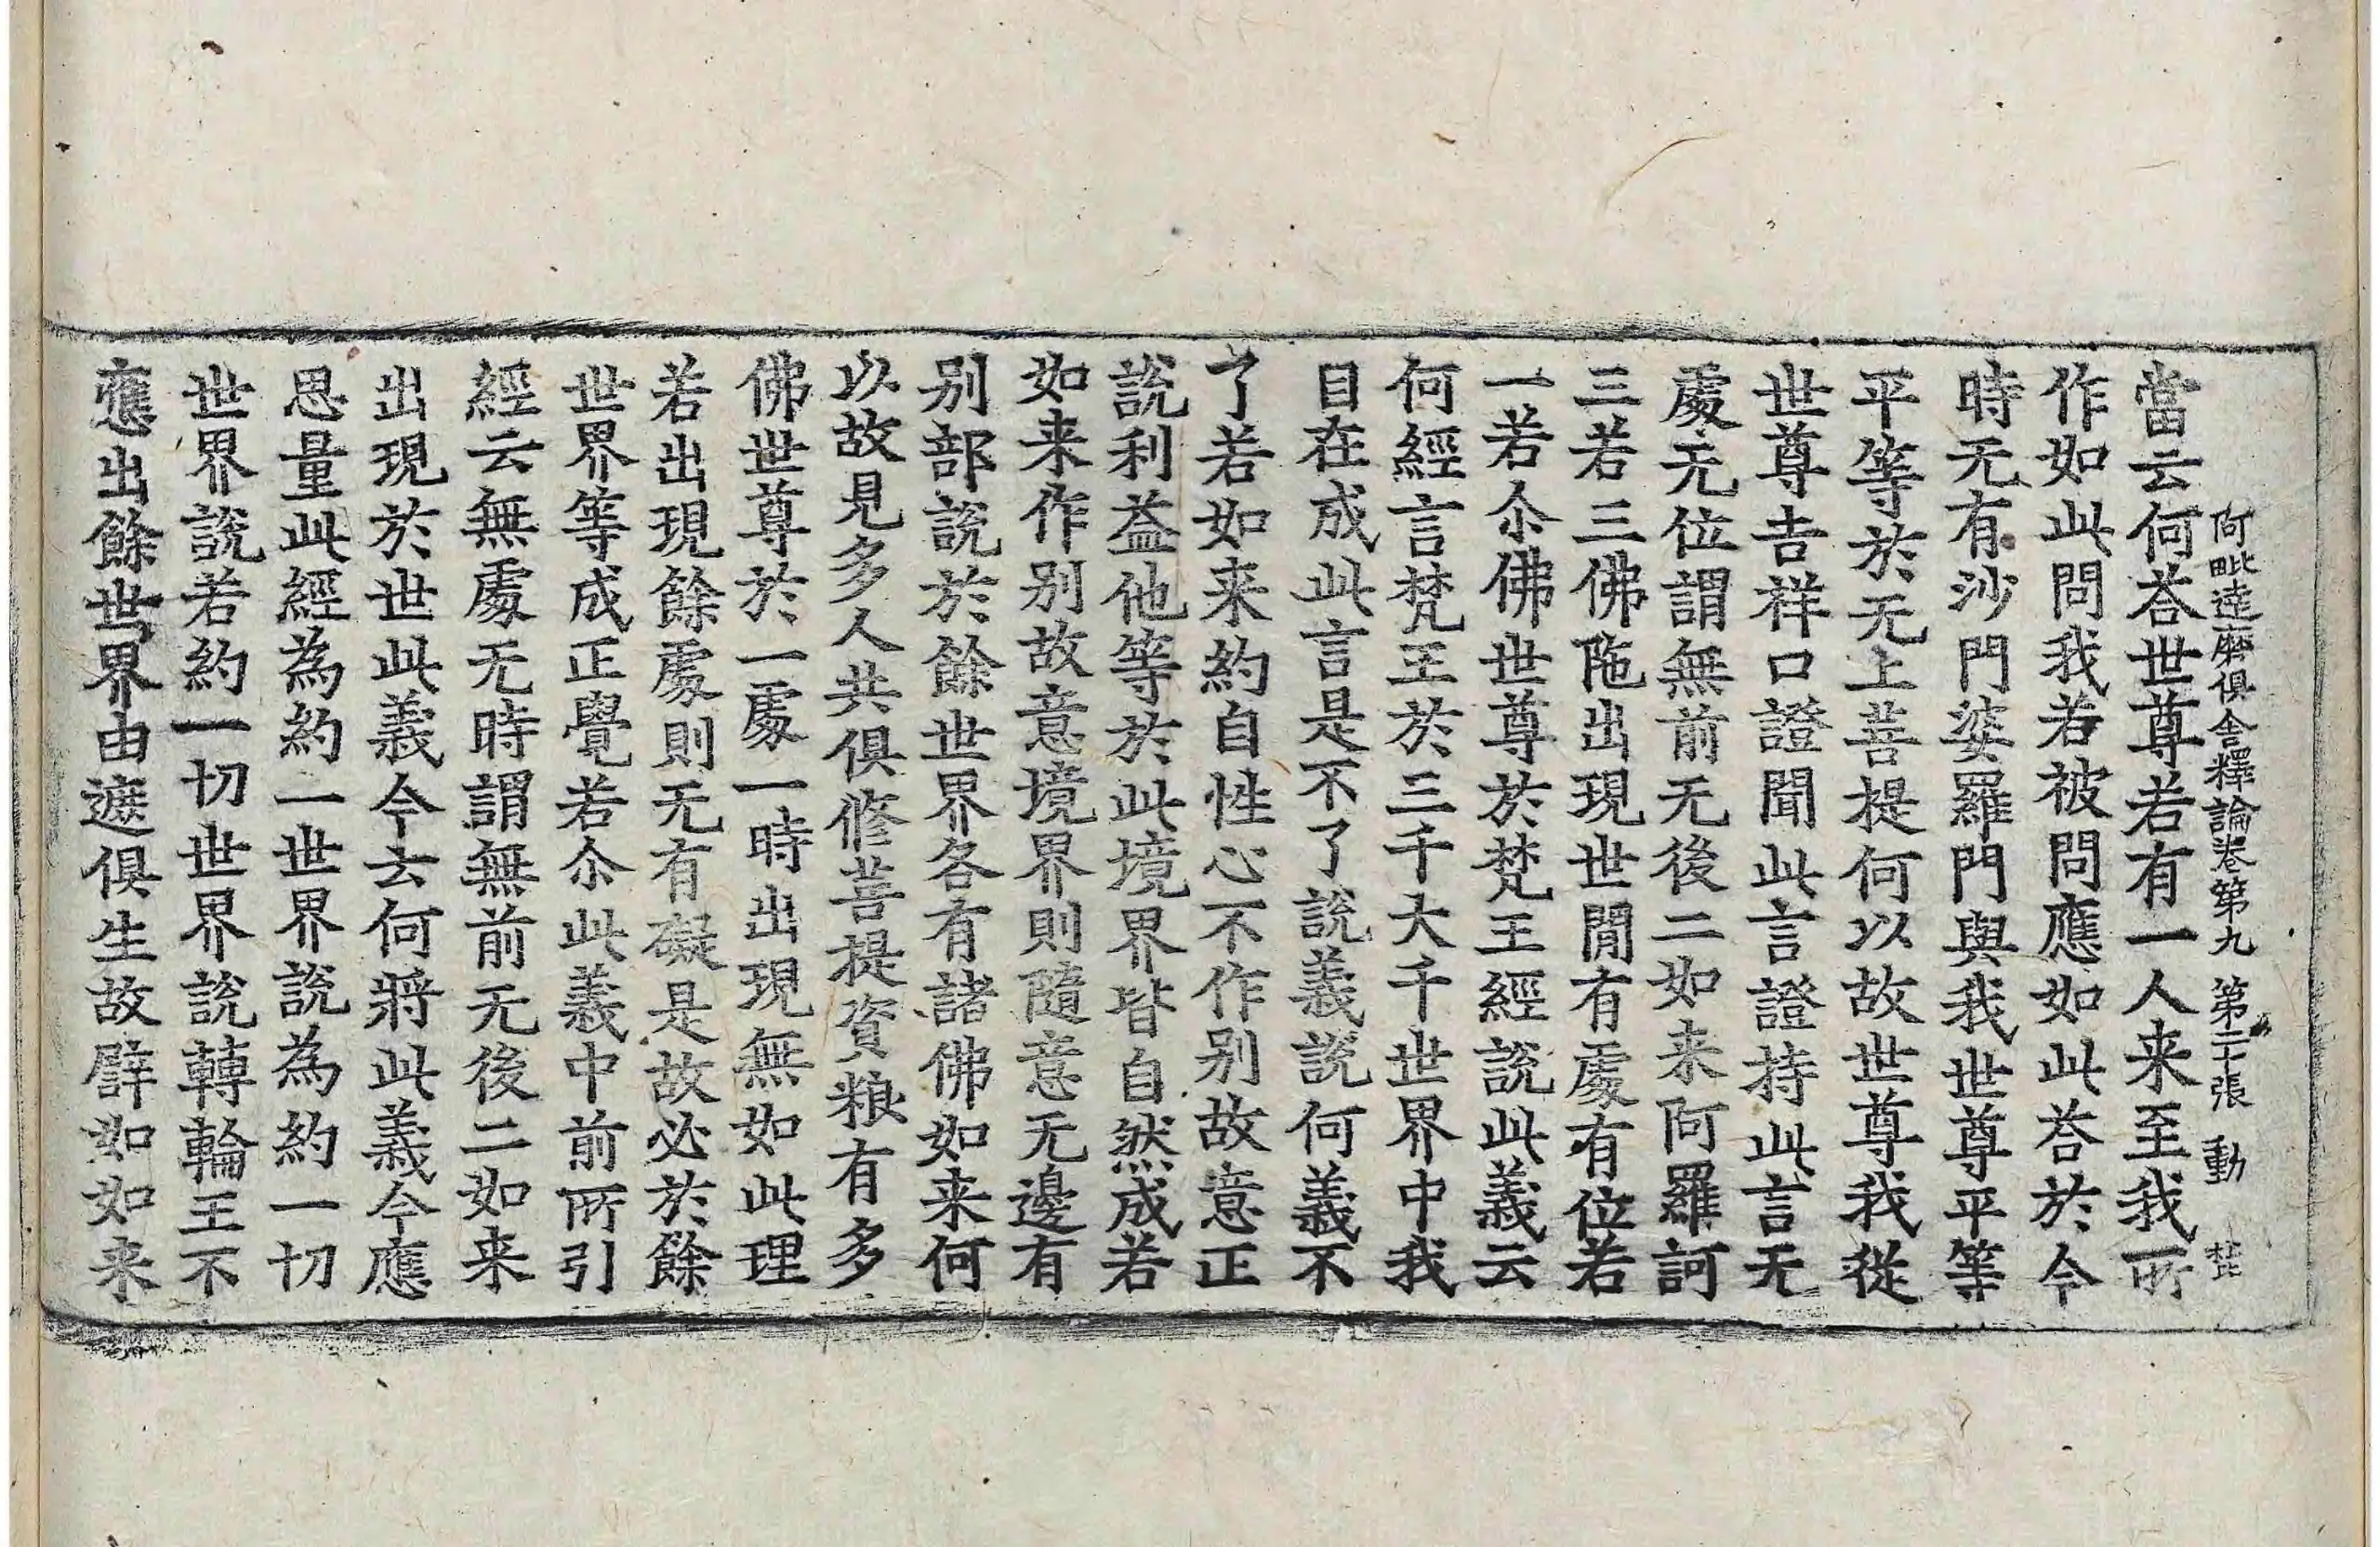 阿毗達磨俱舍釋論卷第九 第二十張 動
當云何荅世尊若有一人来至我所
作如此問我若被問應如此荅於今
時无有沙門婆羅門與我世尊平等
平等於无上菩提何以故世尊我從
世尊吉祥口證聞此言證持此言无
處无位謂無前无後二如来阿羅訶
三若三佛陁出現世間有處有位若
一若尒佛世尊於梵王經說此義云
何經言梵王於三千大千世界中我
自在成此言是不了說義說何義不
了若如来約自性心不作别故意正
說利益他等於此境界皆自然成若
如来作别故意境界則隨意无邊有
别部說於餘世界各有諸佛如来何
以故見多人共俱修菩提資粮有多
佛世尊於一處一時出現無如此理
若出現餘處則无有礙是故必於餘
世界等成正覺若尒此義中前所引
經云無處无時謂無前无後二如来
出現於世此義今去何將此義今應
思量此經為約一世界說為約一切
世界說若約一切世界說轉輪王不
應出餘世界由遮俱生故譬如如来